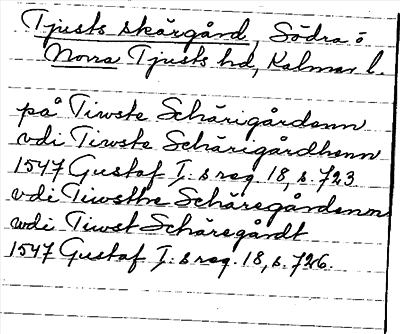 Tjusts skärgård, Södra o
Norra Tjusts hd, Kalmar l.
på Tiwste Schärigårdenn
vdi Tiwste Schärigårdhenn
1547 Gustaf I:s reg. 18, s. 723
vdi Tiwsthe Schäregårdenn
wdi Tiwst Schäregårdt
1547 Gustaf I:s reg. 18, s. 726.